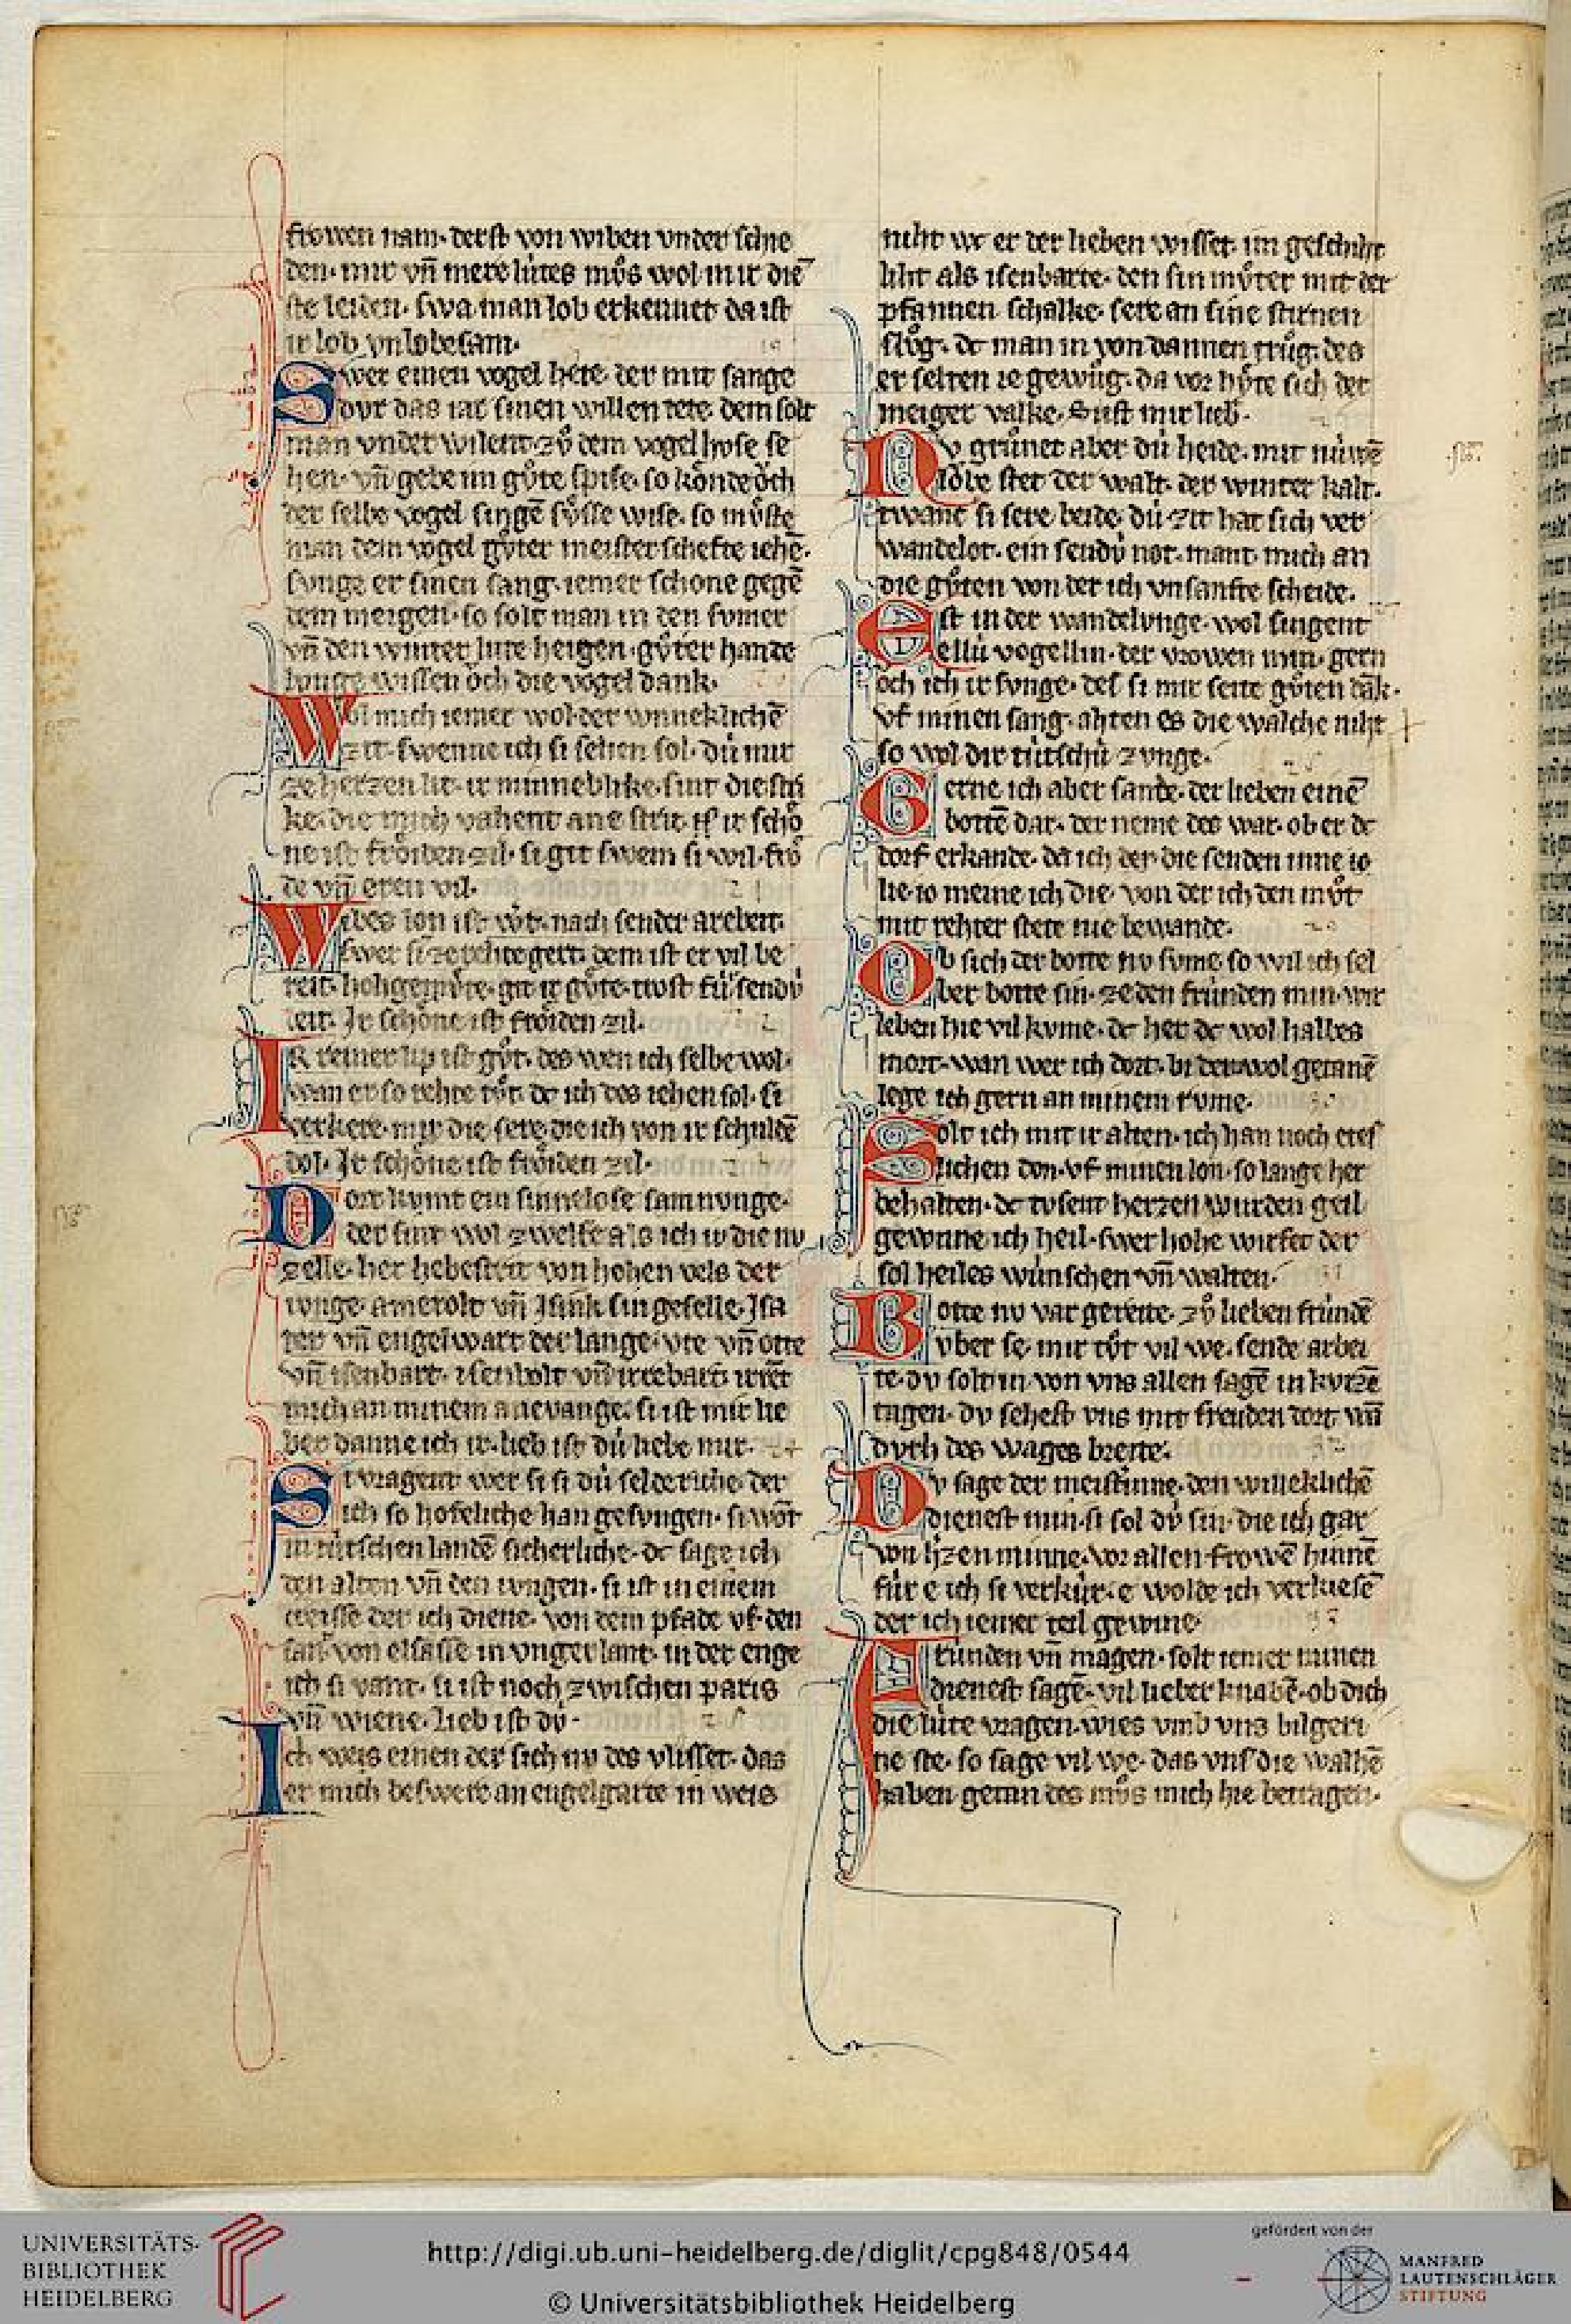 frowen nam. derst von wiben vnder sche
den. mir vñ mere lútes můs wol mit die
ste leiden. swa man lob erkennet da ist
ir lob vnlobesam.
Swer einen vogel hete. der mit sange
dvr das iar sinen willen tete. dem solt
man vnder wilent zů dem vogelhvse se
hen. vñ gebe im gůte spise. so kónde ŏch
der selbe vogel singē sůsse wise. so můste
man dem vogel gůter meisterschefte iehē.
svnge er sinen sang iemer schone gegē
dem meigen. so solt man in den svmer
vñ den winter hute heigen. gůter hande
lvnge wissen ŏch die vogel dank.
Wol mich iemer wol der wnneklichē
zit. swenne ich si sehen sol. dú mir
ze herzen lit. ir minneblike. sint die stri
ke. die mich vahent ane strit. ir schŏ
ne ist frŏiden zil. si git swem si wil. frŏ
de vñ eren vil.
Wibes lon ist gůt. nach sender arebeit.
swer si ze rehte gert. dem ist er vil be
reit. hohgemůte. git ir gůte. trost fúr sendú
leit. Ir schŏne ist frŏiden zil.
Ir reiner lip ist gůt. des wen ich selbe wol.
wan er so rehte tůt. dc ich des iehen sol. si
verkere mir die sere. die ich von ir schuldē
dol. Ir schŏne ist frŏiden zil.
Dort kvmt ein sinnelose samnvnge.
der sint wol zwelfe als ich iv die nv
zelle. her hebestrit von hohen vels der
ivnge. amerolt vñ Isink sin geselle. Isa
ter vñ engelwart der lange. vte vñ otte
vñ isenbart. isenbolt vñ irrebart. irrēt
mich an minem anevange. si ist mir lie
ber danne ich ir. lieb ist dú liebe mir.
Si vragent wer si si dú selderiche. der
ich so hofeliche han gesvngen. si wŏt
in tútschen landē sicherliche. dc sage ich
den alten vñ den ivngen. si ist in einem
creisse der ich diene. von dem pfade vf den
sant. von elsasse in vngerlant. in der enge
ich si vant. si ist noch zwischen paris
vñ wiene. lieb ist dv.
Ich weis einen der sich nv des vlisset. das
er mich beswere an engelgarte in weis
niht wc er der lieben wisset. im geschiht
liht als isenbarte. den sin mŏter mit der
pfannen schalke. sere an sine stirnen
slŏg. dc man in von dannen trŭg. des
er selten ie gewŭg. da vor hŏte sich der
meiger valke. Sust mir lieb.
Nv grůnet aber dú heide. mit núwē
lŏbe stet der walt. der winter kalt.
twanc si sere beide. dú zit hat sich ver
wandelot. ein sendú not. mant mich an
die gŏten von der ich vnsanfte scheide.
Est in der wandelvnge. wol singent
ellú vogellin. der vrowen min. gern
och ich ir svnge. des si mir seite gŏten dāk.
vf minen sang. ahten es die walche niht
so wol dir tútschú zvnge.
Gerne ich aber sande. der lieben einē
bottē dar. der neme des war. ob er dc
dorf erkande. da ich der die senden inne io
lie. io meine ich die. von der ich den mŏt
mit rehter stete nie bewande.
Ob sich der botte nv svme. so wil ich sel
ber botte sin. ze den frúnden min. wir
leben hie vil kvme. dc her dc wol halbes
mort. wan wer ich dort. bi der wol getanē
lege ich gern an minem rvme.
Solt ich mit ir alten. ich han noch etes
lichen don. vf minen lon. so lange her
behalten. dc tvsent herzen wurden geil
gewinne ich heil. swer hohe wirfet der
sol heiles wúnschen vñ walten.
Botte nv var gereite. zŏ lieben frúndē
vber se. mir tŏt vil we. sende arbei
te. dv solt in von vns allen sagē in kvrzē
tagen. dv sehest vns mit freuden dort vñ
dvrh des wages breite.
Dv sage der meistrinne. den wineklichē
dienest min. si sol dú sin. die ich gar
von h̄zen minne. vor allen frowē hinnē
fúr e ich si verkúr. e wolde ich verkiesē
der ich iemer teil gewinne.
Frúnden vñ magen. solt iemer minen
dienest sagē. vil lieber knabē. ob dich
die lúte vragen. wies vmb vns bilgeri
ne ste. so sage vil we. das vns die walhē
haben getan des mŏs mich hie betragen.
UNIVERSITÄTS-
BIBLIOTHEK
HEIDELBERG
http://digi.ub.uni-heidelberg.de/diglit/cpg848/0544
© Universitätsbibliothek Heidelberg
gefördert von der
MANFRED
LAUTENSCHLÄGER
STIFTUNG